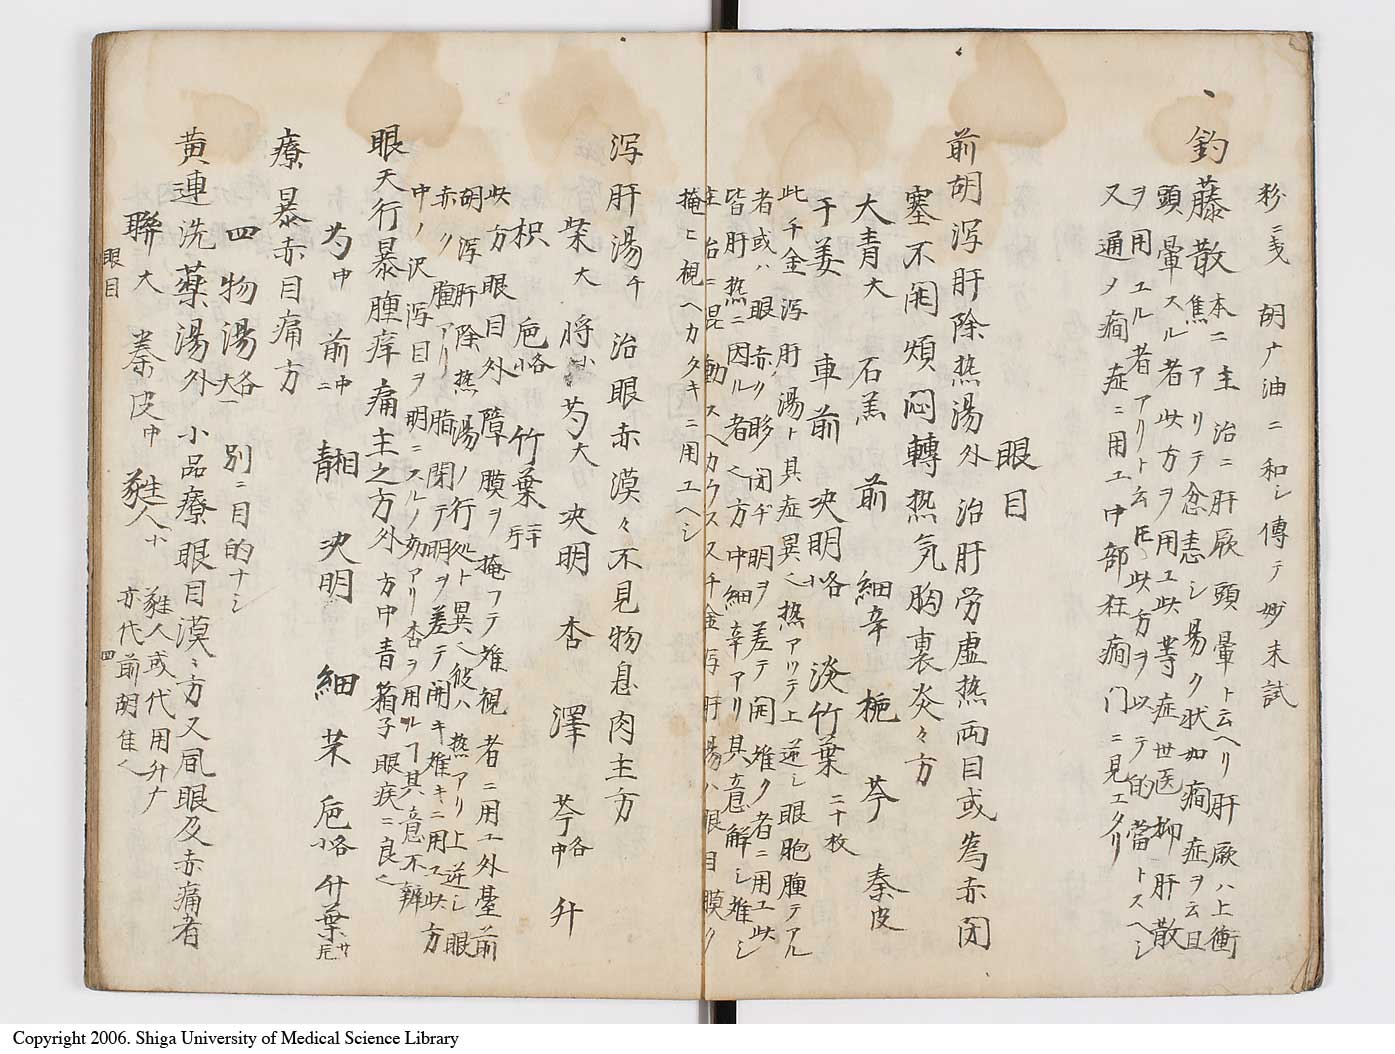 粉ニ〆 胡广油ニ和シ傳テ妙未試
釣藤散 本ニ主治ニ肝厥頭暈ト云ヘリ肝厥ハ上衝
焦アリテ忿恚シ易ク状如癇症ヲ云且
頭暈スル者此方ヲ用エ此等症世医抑肝散
ヲ用エル者アリト云𪜈此方ヲ以テ的當トスヘシ
又通ノ癇症ニ用エ中部狂癇门ニ見エタリ
眼目
前胡泻肝除热湯外 治肝労虚热両目或為赤闭
塞不開煩悶轉热気胸裏炎々方
大青大 石羔 前 細辛 栀 芩 秦皮
干姜 車前 决明各小 淡竹葉二十枚
此千金泻肝湯ト其症異乀热アリテ上逆シ眼胞腫テアル
者或ハ眼赤ク眵闭ヂ明ヲ差テ開難ク者ニ用エ此
皆肝热ニ因ル者乀方中細辛アリ其意解シ難シ
主治ニ昆動スヘカラス又千金泻肝湯ハ眼目膜ク
掩ヒ視ヘカタキニ用エヘシ
泻肝湯千 治眼赤漠々不見物息肉主方
柴大 将小 芍大 决明 杏 澤 芩各中 升
枳 巵各小 竹葉二十斤
此方眼目外障膜ヲ掩フテ难視者ニ用エ外臺前
胡泻肝除热湯ノ行処ト異乀彼ハ热アリ上逆シ眼
赤ク腫アリ脂閉テ明ヲ差テ開キ难キニ用ユ此方
中ノ沢泻目ヲ明ニスルノ効アリ杏ヲ用ルヿ其意不辨
眼天行暴腫痒痛主之方外 方中青葙子眼疾ニ良乀
芍中 前中ニ 青相 决明 細 茉 巵各小 竹葉廿斤
療暴赤目痛方
四物湯各大一 別ニ目的ナシ
黄連洗薬湯外 小品療眼目漠々方又風眼及赤痛者
聯大 秦皮中 蕤人小 蕤人或代用升广
亦代前胡佳乀
眼目
四
Copyright 2006. Shiga University of Medical Science Library